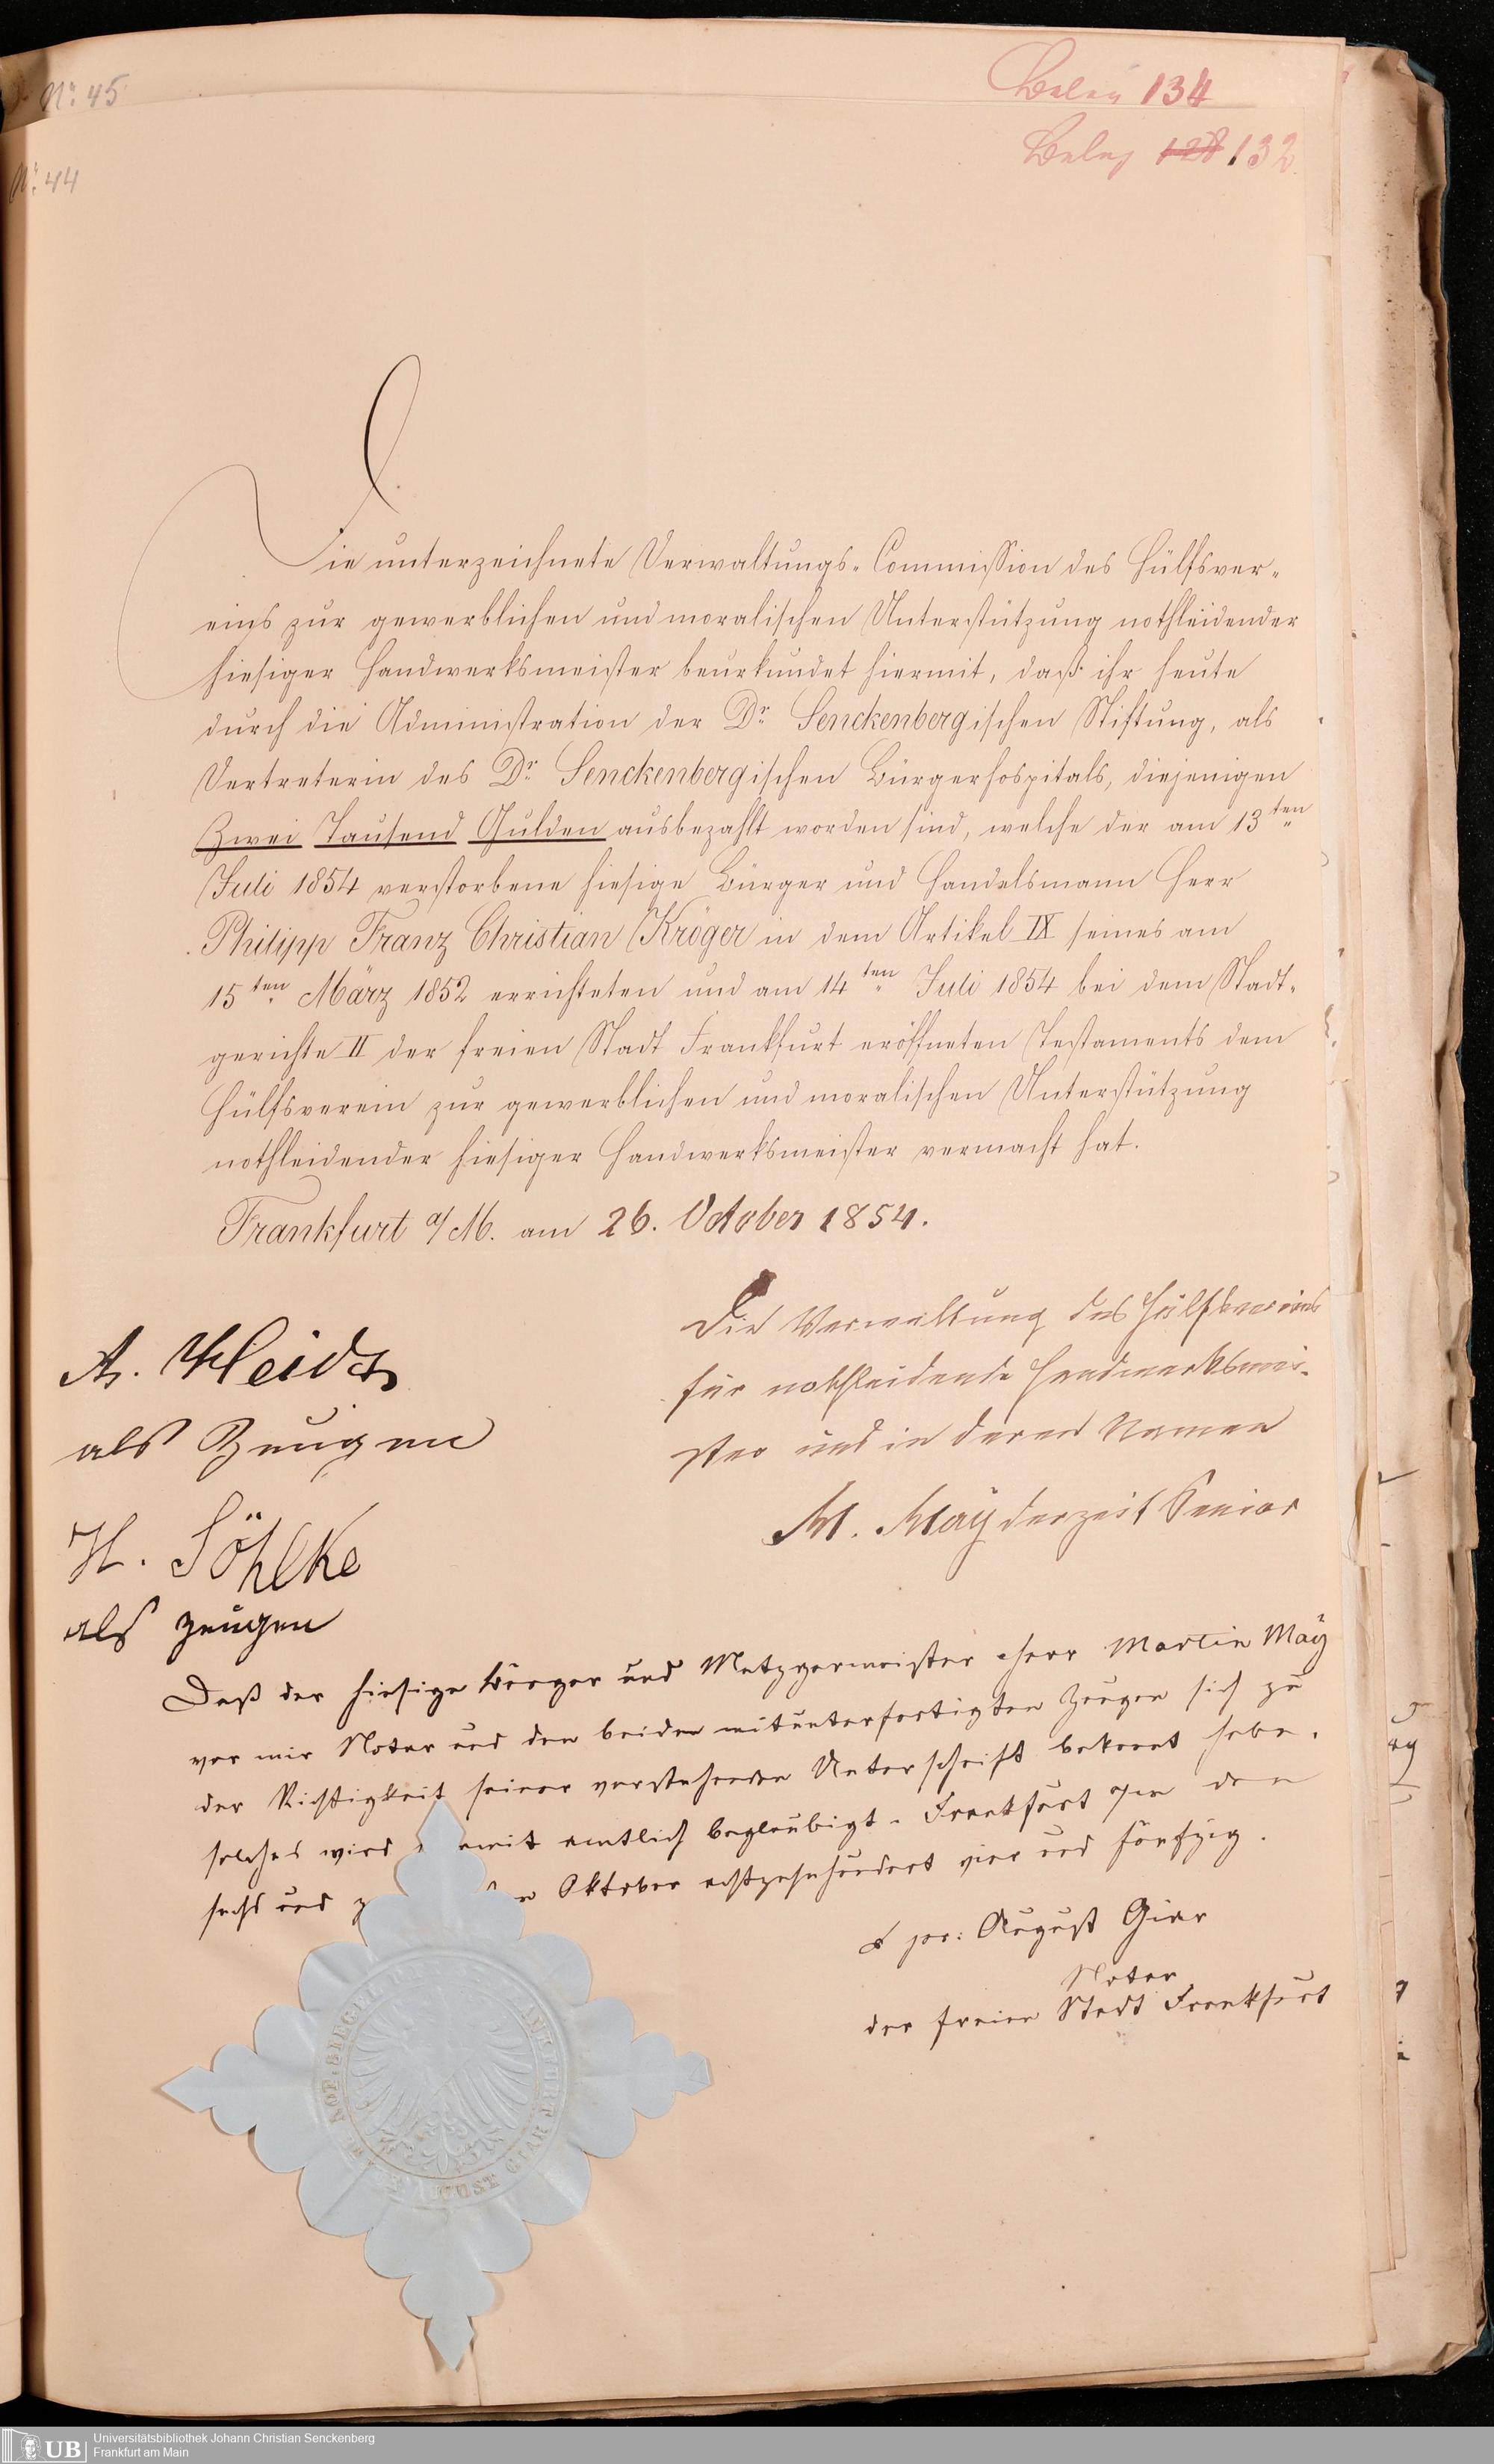 No: 45
Beleg 134
Beleg 128 132
No: 44
Die unterzeichnete Verwaltungs-Commission des Hülfsver-
eins zur gewerblichen und moralischen Unterstützung nothleidender
hiesiger Handwerksmeister beurkundet hiermit, daß ihr heute
durch die Administration der Dr. Senckenbergischen Stiftung, als
Vertreterin des Dr. Senckenbergischen Bürgerhospitals, diejenigen
Zwei Tausend Gulden ausbezahlt worden sind, welche der am 13ten
Juli 1854 verstorbene hiesige Bürger und Handelsmann Herr
Philipp Franz Christian Kröger in dem Artikel IX seines am
15ten März 1852 errichteten und am 14ten Juli 1854 bei dem Stadt-
gerichte II der freien Stadt Frankfurt eröffneten Testaments dem
Hülfsverein zur gewerblichen und moralischen Unterstützung
nothleidender hiesiger Handwerksmeister vermacht hat.
Frankfurt a/M. am 26. October 1854.
Die Verwaltung des Hülfsvereins
für nothleidende Handwerksmei-
ster und in deren Namen
M. Maÿ derzeit Senior
A.
als Zeugen
H. Söhlke
als Zeugen
Daß der hiesige Bürger und Metzgermeister Herr Martin Maÿ
vor mir Notar und den beiden mitunterfertigten Zeugen sich zu
der Richtigkeit seiner vorstehenden Unterschrift bekannt habe,
solches wird amtlich beglaubigt. Frankfurt den
sechs und Oktober achtzehnhundert vier und fünfzig.
August Giar
Notar
der freien Stadt Frankfurt
AUGUST GIAR
Universitätsbibliothek Johann Christian Senckenberg
Frankfurt am Main
UB